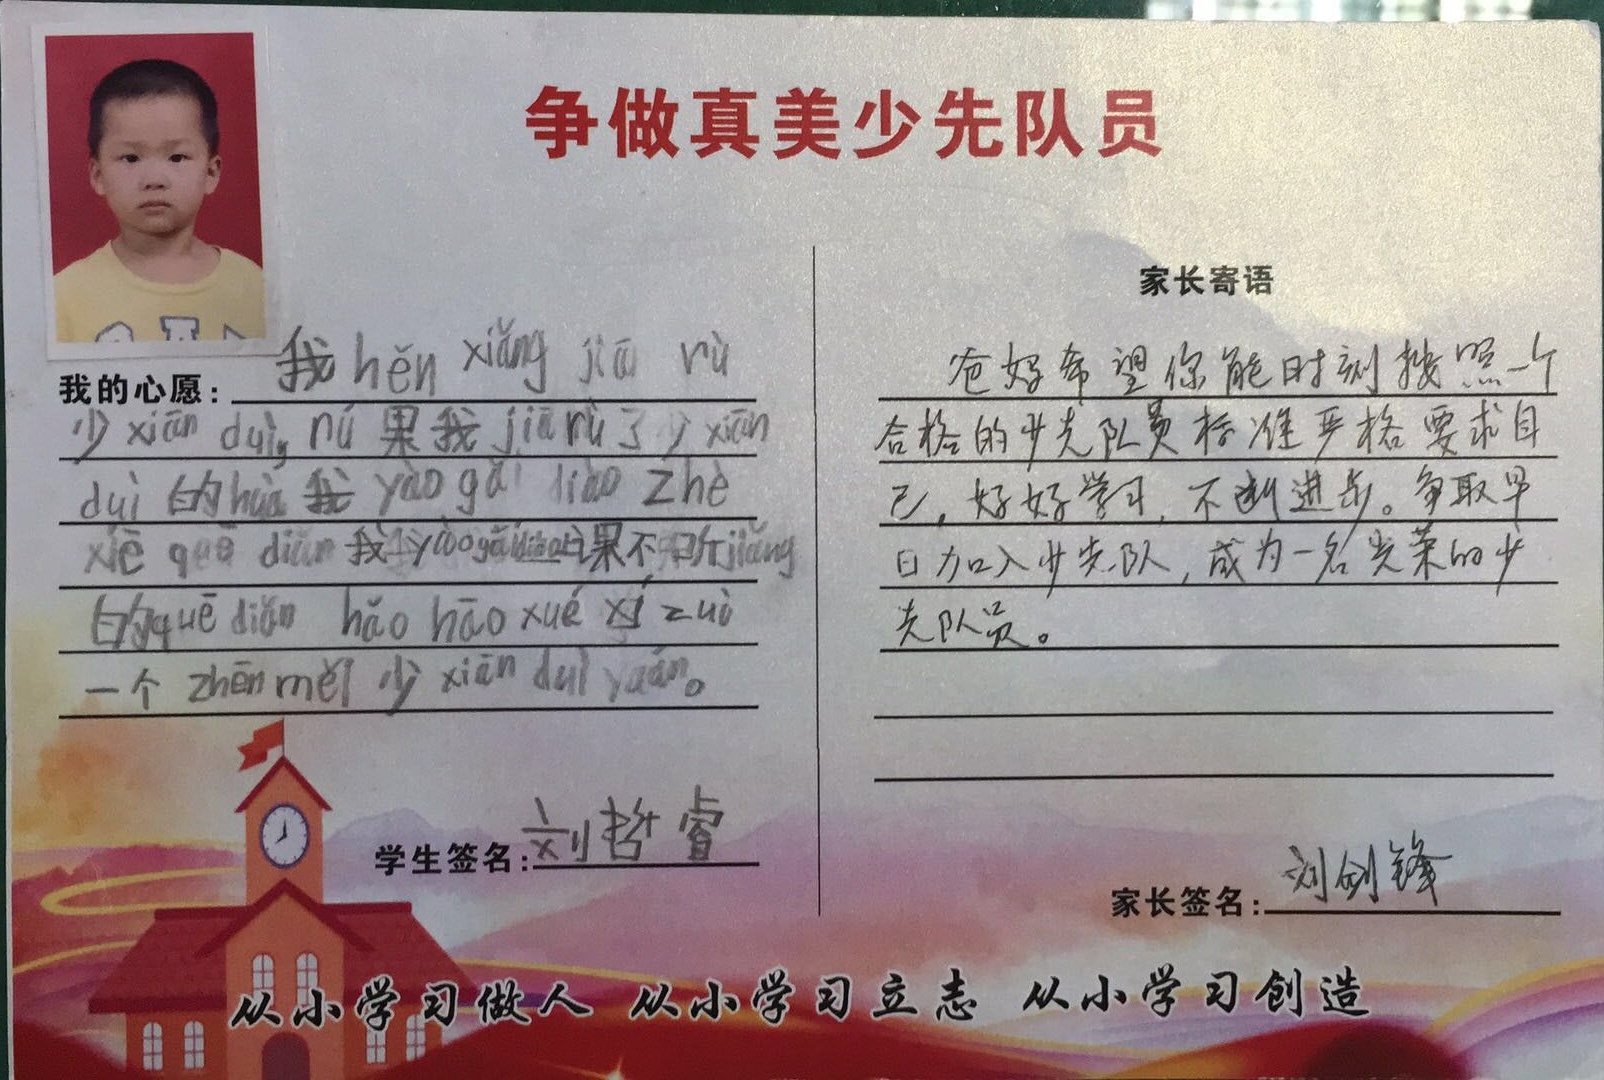 争做真美少先队员
我的心愿: 我 hěn xiǎng jiā rù
少 xiān duì, rú 果我 jiā rù 了少 xiān
duì 的 huà 我 yào gǎi diào zhè
xiē quē diǎn 我 yào gǎi 果不 jiǎng
的 quē diǎn hǎo hāo xué xí zuò
一个 zhēn měi 少 xiān duì yuán。
学生签名: 刘哲睿
家长寄语
爸好希望你能时刻按照一个
合格的少先队员标准严格要求自
己,好好学习,不断进步。争取早
日加入少先队,成为一名光荣的少
先队员。
家长签名: 刘剑锋
从小学习做人 从小学习立志 从小学习创造